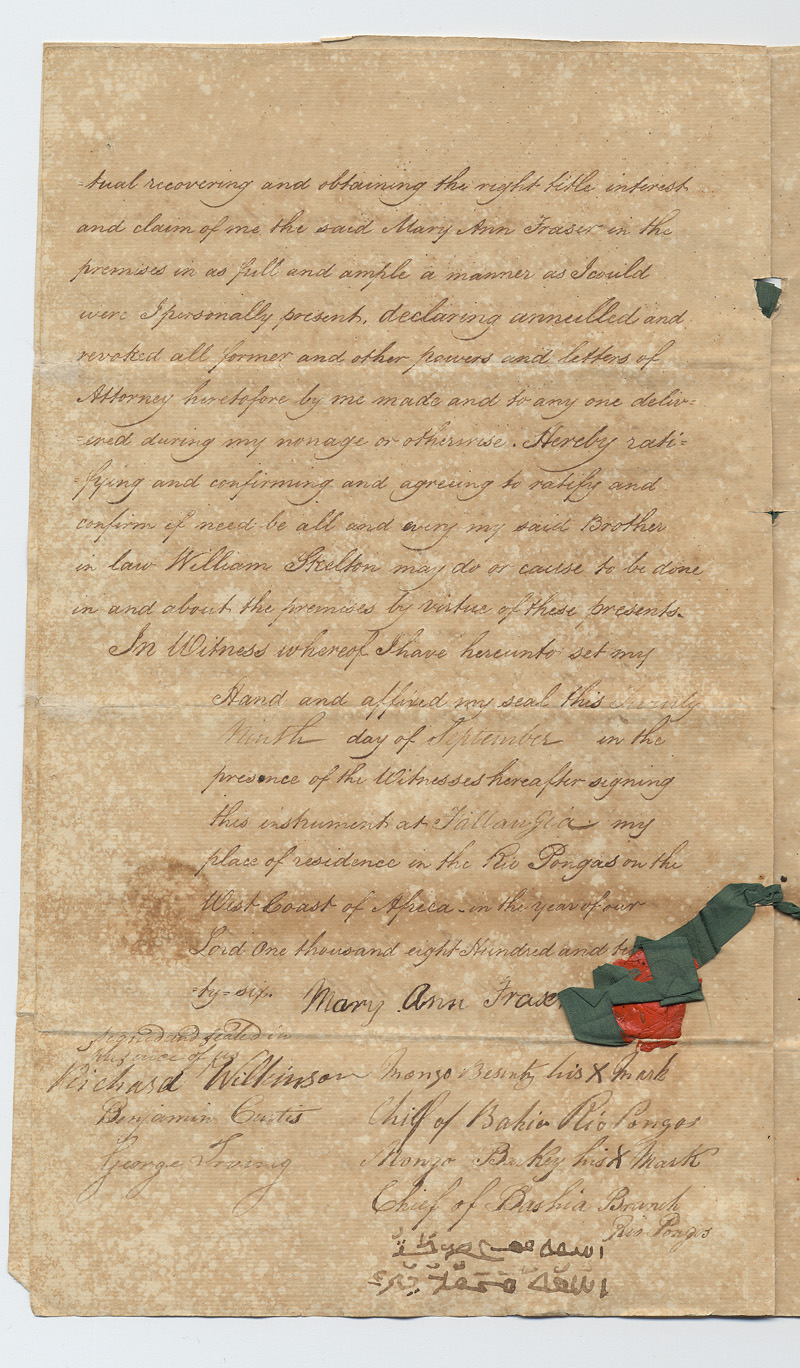 =tual recovering and obtaining the right title interest
and claim of me the said Mary Ann Fraser in the
premises in as full and ample a manner as I could
were I personally present, declaring annulled and
revoked all former and other powers and letters of
Attorney heretofore by me made and to any one deliv=
=ered during my nonage or otherwise. Hereby rati=
=fying and confirming and agreeing to ratify and
confirm if need be all and every my said Brother
in law William Skelton may do or cause to be done
in and about the premises by virtue of these presents.
In Witness whereof I have hereunto set my
Hand and affixed my seal this Twenty
Ninth day of September in the
presence of the Witnesses hereafter signing
this instrument at my
place of residence in the Rio Pongas on the
West Coast of Africa - in the year of our
Lord One thousand eight Hundred and
=ty=six. Mary Ann Fraser
Signed and sealed in
presence of
Richard Wilkinson
Benjamin Curtis
George Irving
Mongo his X Mark
Chief of Bahia Rio Pongos
Mongo his X Mark
Chief of Bashia Branch
Rio Pongos